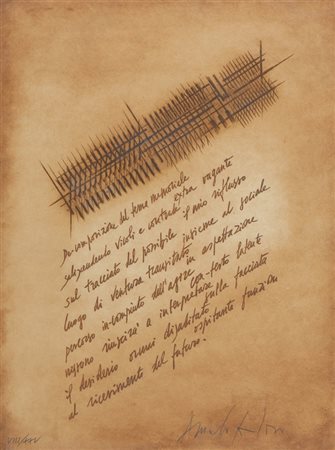 Decomposizione del tema memoriale
selezionando vicoli e contrade extra vagante
sul tracciato del possibile il mio riflusso
luogo di ventura transitato insieme al sociale
percorso incompiuto dell'agire in aspettazione
nessuno riuscirà a interpretare con-testo latente
il desiderio ormai disabitato sulla facciata
al ricevimento del futuro. ospitante funzioni
VIII/XXV